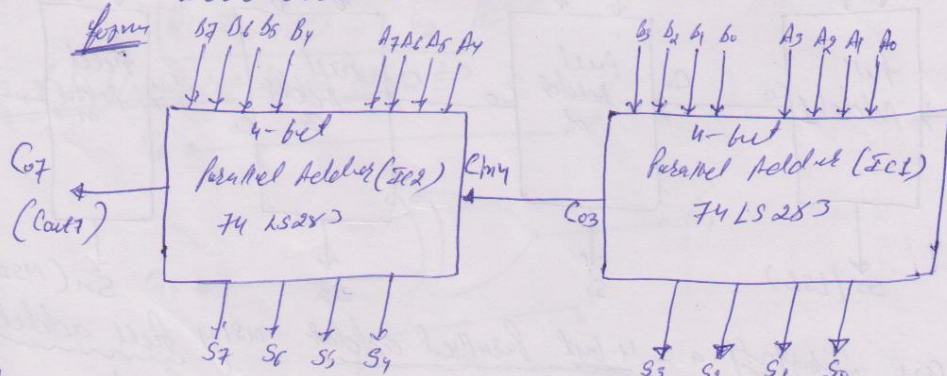 B7 B6 B5 B4 A7 A6 A5 A4
B3 B2 B1 B0 A3 A2 A1 A0
4-bit
Parallel Adder (IC2)
74 LS283
Co7
(Cout7)
Cin4
Co3
4-bit
Parallel Adder (IC1)
74 LS283
S7 S6 S5 S4
S3 S2 S1 S0